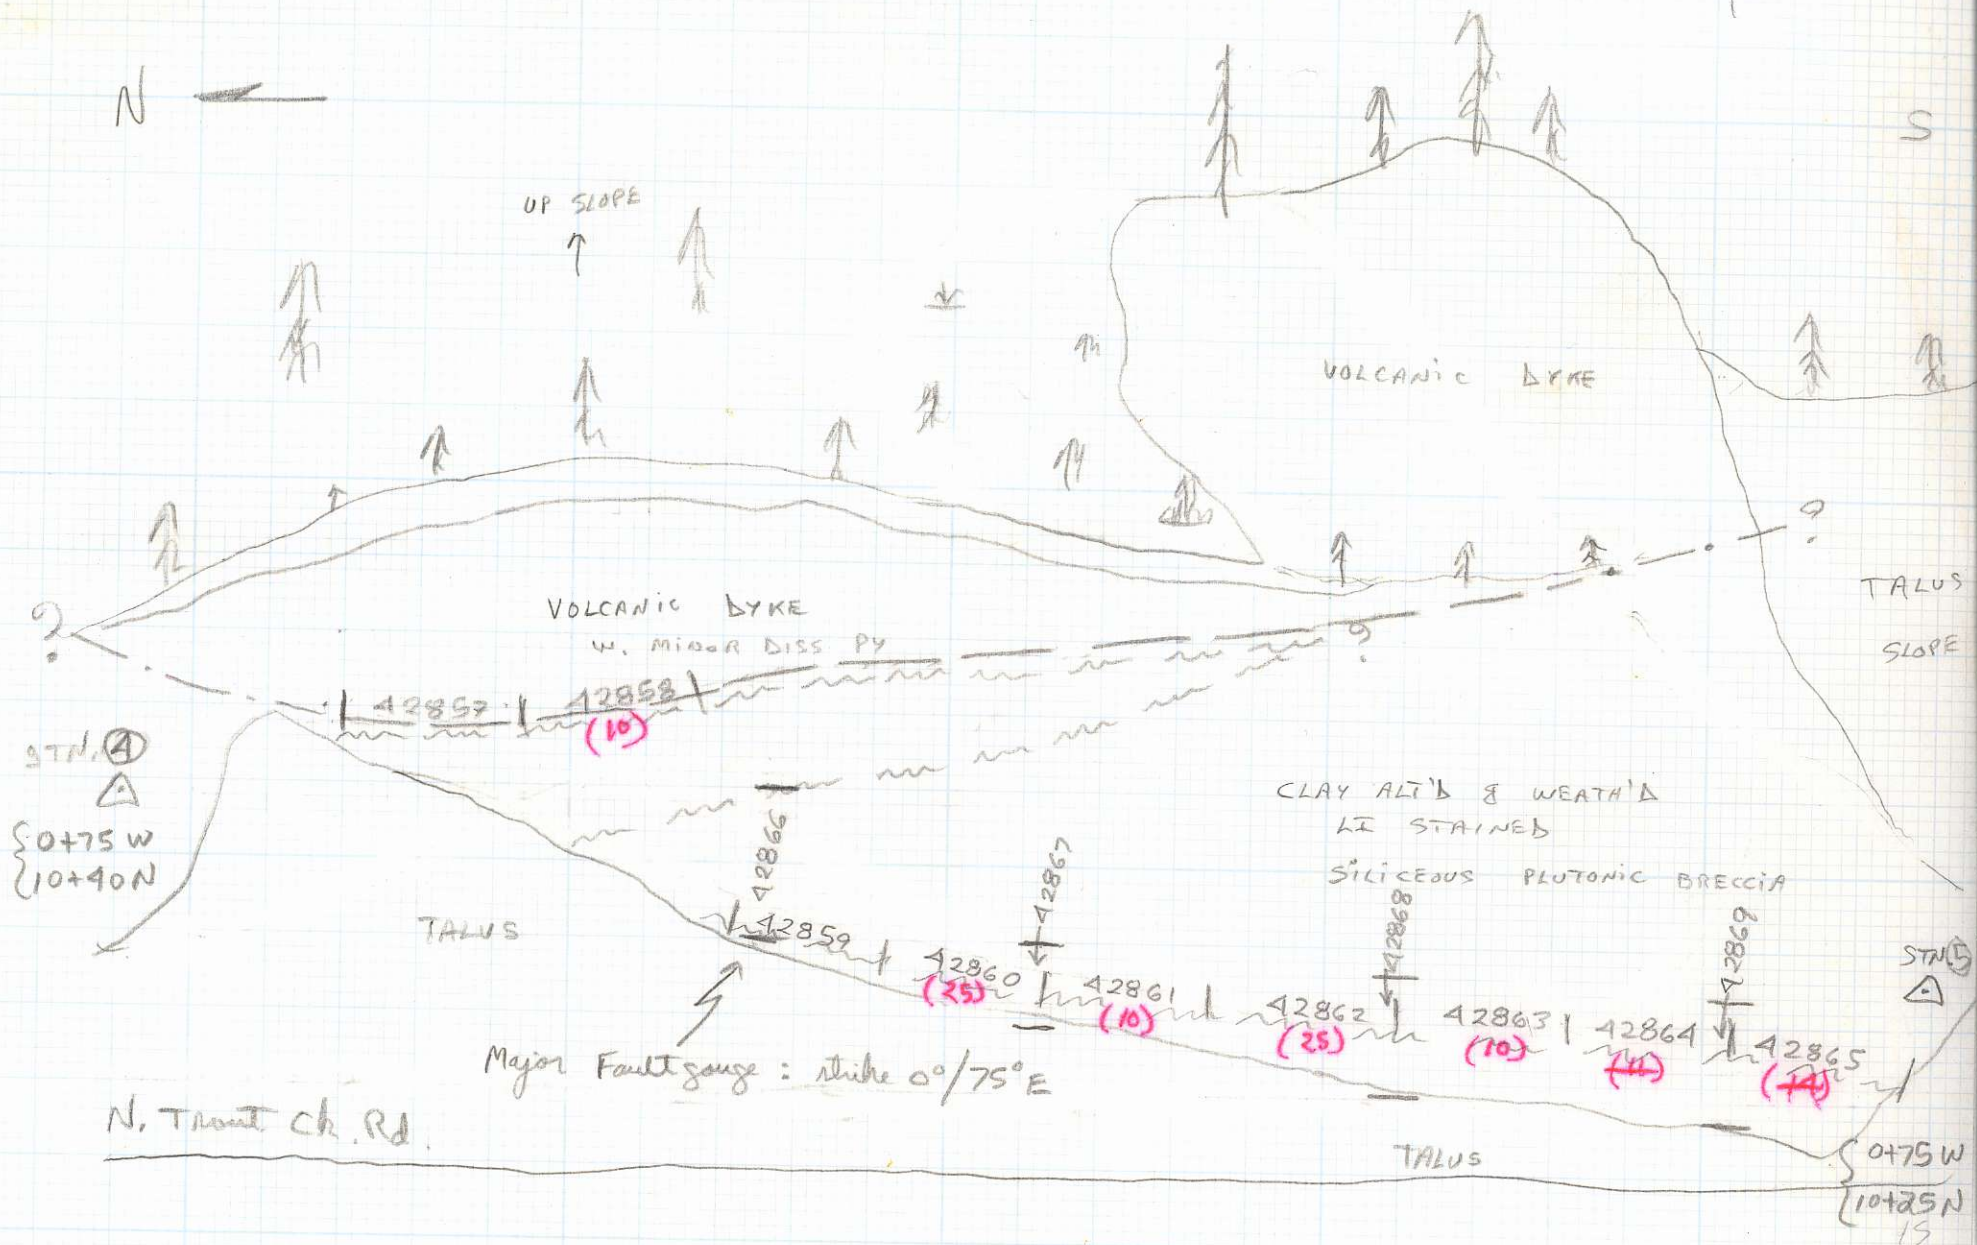 N
S
UP SLOPE
VOLCANIC DYKE
?
?
TALUS
SLOPE
VOLCANIC DYKE
W. MINOR DISS PY
?
42857
42858
(10)
STN. 4
0+75 W
10+40N
CLAY ALT'D & WEATH'D
LI STAINED
SILICEOUS PLUTONIC BRECCIA
42866
42867
42868
42869
TALUS
42859
42860
(25)
42861
(10)
42862
(25)
42863
(10)
42864
42865
STN 5
Major Fault gouge : strike 0°/75°E
N. Trout Ck. Rd.
TALUS
0+75 W
10+25N
15